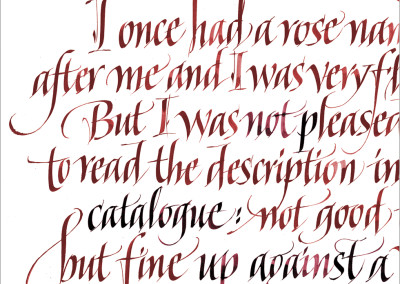 I once had a rose nam
after me and I was very fl
But I was not pleased
to read the description in
catalogue: not good
but fine up against a